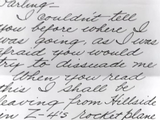 Darling-
I couldn't tell
you before where I
was going, as I was
afraid you would
try to dissuade me
When you read
this I shall be
leaving from Hillside
in Z-4's rocket plane